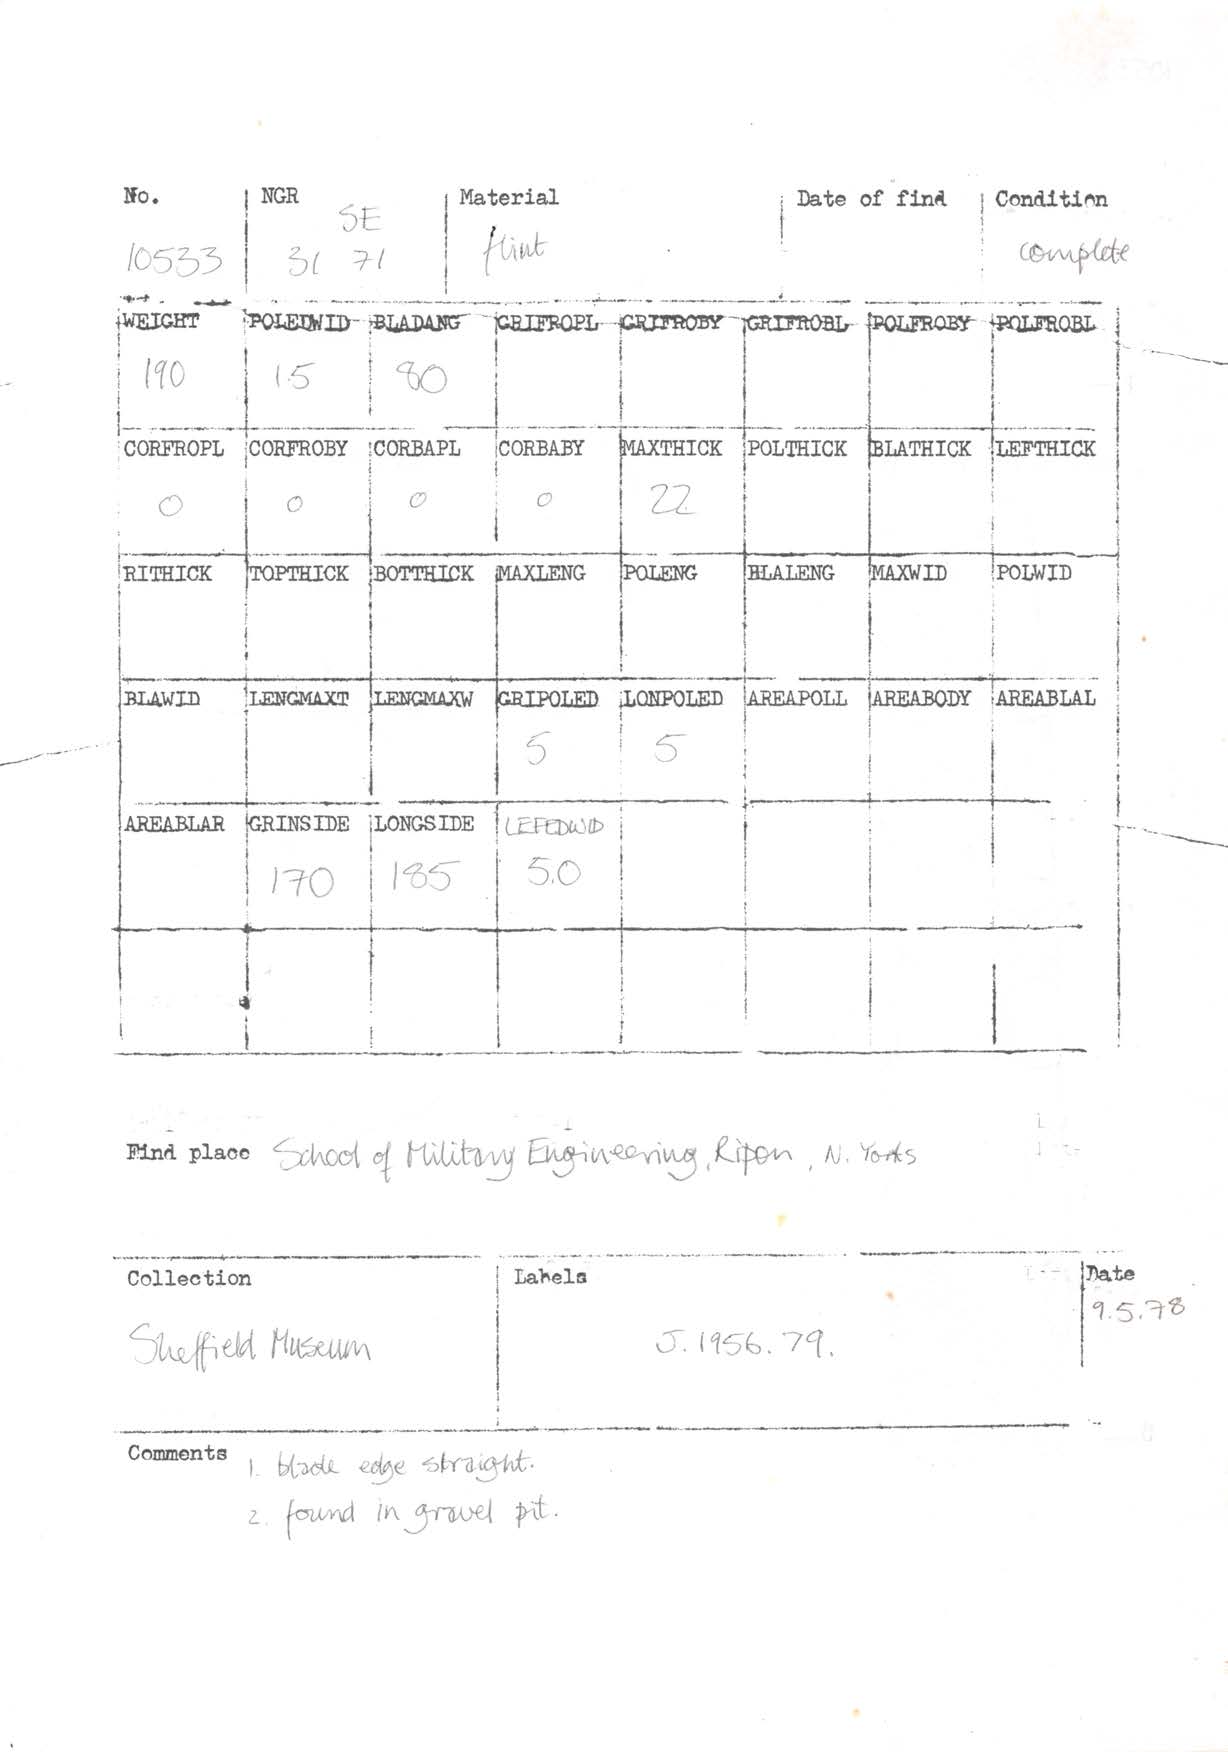 No. NGR Material Date of find Condition
SE
10533 31 71 flint complete
WEIGHT POLEDWID BLADANG GRIFROPL GRIFROBY GRIFROBL POLFROBY POLFROBL
190 1.5 80
CORFROPL CORFROBY CORBAPL CORBABY MAXTHICK POLTHICK BLATHICK LEFTHICK
0 0 0 0 22
RITHICK TOPTHICK BOTTHICK MAXLENG POLENG BLALENG MAXWID POLWID
BLAWID LENGMAXT LENGMAXW GRIPOLED LONPOLED AREAPOLL AREABODY AREABLAL
5 5
AREABLAR GRINSIDE LONGSIDE LEFEDWID
170 185 5.0
Find place School of Military Engineering, Ripon, N. Yorks
Collection Labels Date
9.5.78
Sheffield Museum J.1956.79.
Comments 1. blade edge straight.
2. found in gravel pit.